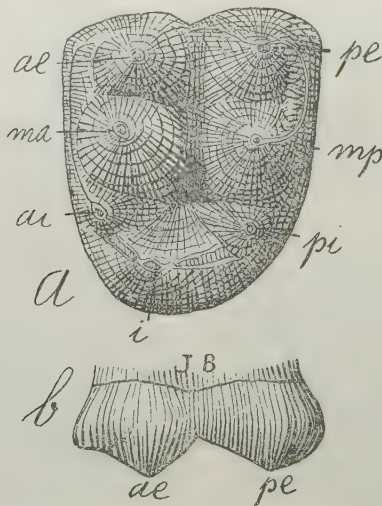 ae pe
ma mp
ai pi
a
i
J B
b
ae pe